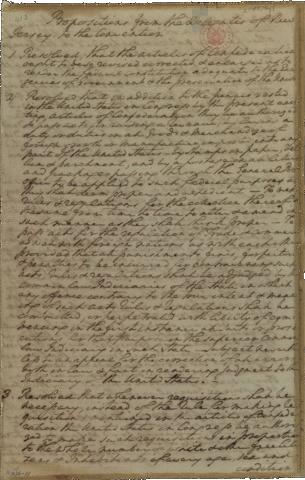 Propositions from the Delegates of New
Jersey to the Convention
1. Resolved that the articles of Confederation
ought to be so revised corrected & enlarged as to
render the federal constitution adequate to the exi-
gencies of Government & the preservation of the Union
2. Resolved that in addition to the powers vested
in the United States in Congress by the present exis-
ting articles of Confederation they be authorised
to pass acts for raising a revenue by levying a
duty or duties on all goods & merchandizes of
foreign growth or manufacture imported into any
part of the United States
and by a postage on all letters
and packages passing through the General Post
office to be applied to such federal purposes as
they shall deem proper and expedient — To make
rules & regulations for the collection thereof
from time to time to alter & amend
in such manner as they shall think proper — To
pass acts for the regulation of Trade & commerce
as well with foreign nations as with each other
provided that all punishments fines forfeitures
& penalties to be incurred for contravening such
acts rules & regulations shall be adjudged by the
common law Judiciaries of the State in which
any offence contrary to the true intent & meaning
of such acts rules & regulations shall be
committed or perpetrated with liberty of com-
mencing in the first instance all suits & prose-
cutions for that purpose in the superior Common
law Judiciary of such State subject neverthe-
less to an appeal for the correction of all errors
both in law & fact in rendering Judgment to the
Judiciary of the United States. —
3. Resolved that whenever requisitions shall be
necessary instead of the rule for making re-
quisitions mentioned in the articles of Confede-
ration the United States in Congress be authori-
zed to make such requisitions in proportion
to the whole number of white & other free citi-
zens & Inhabitants of every age sex and
condition